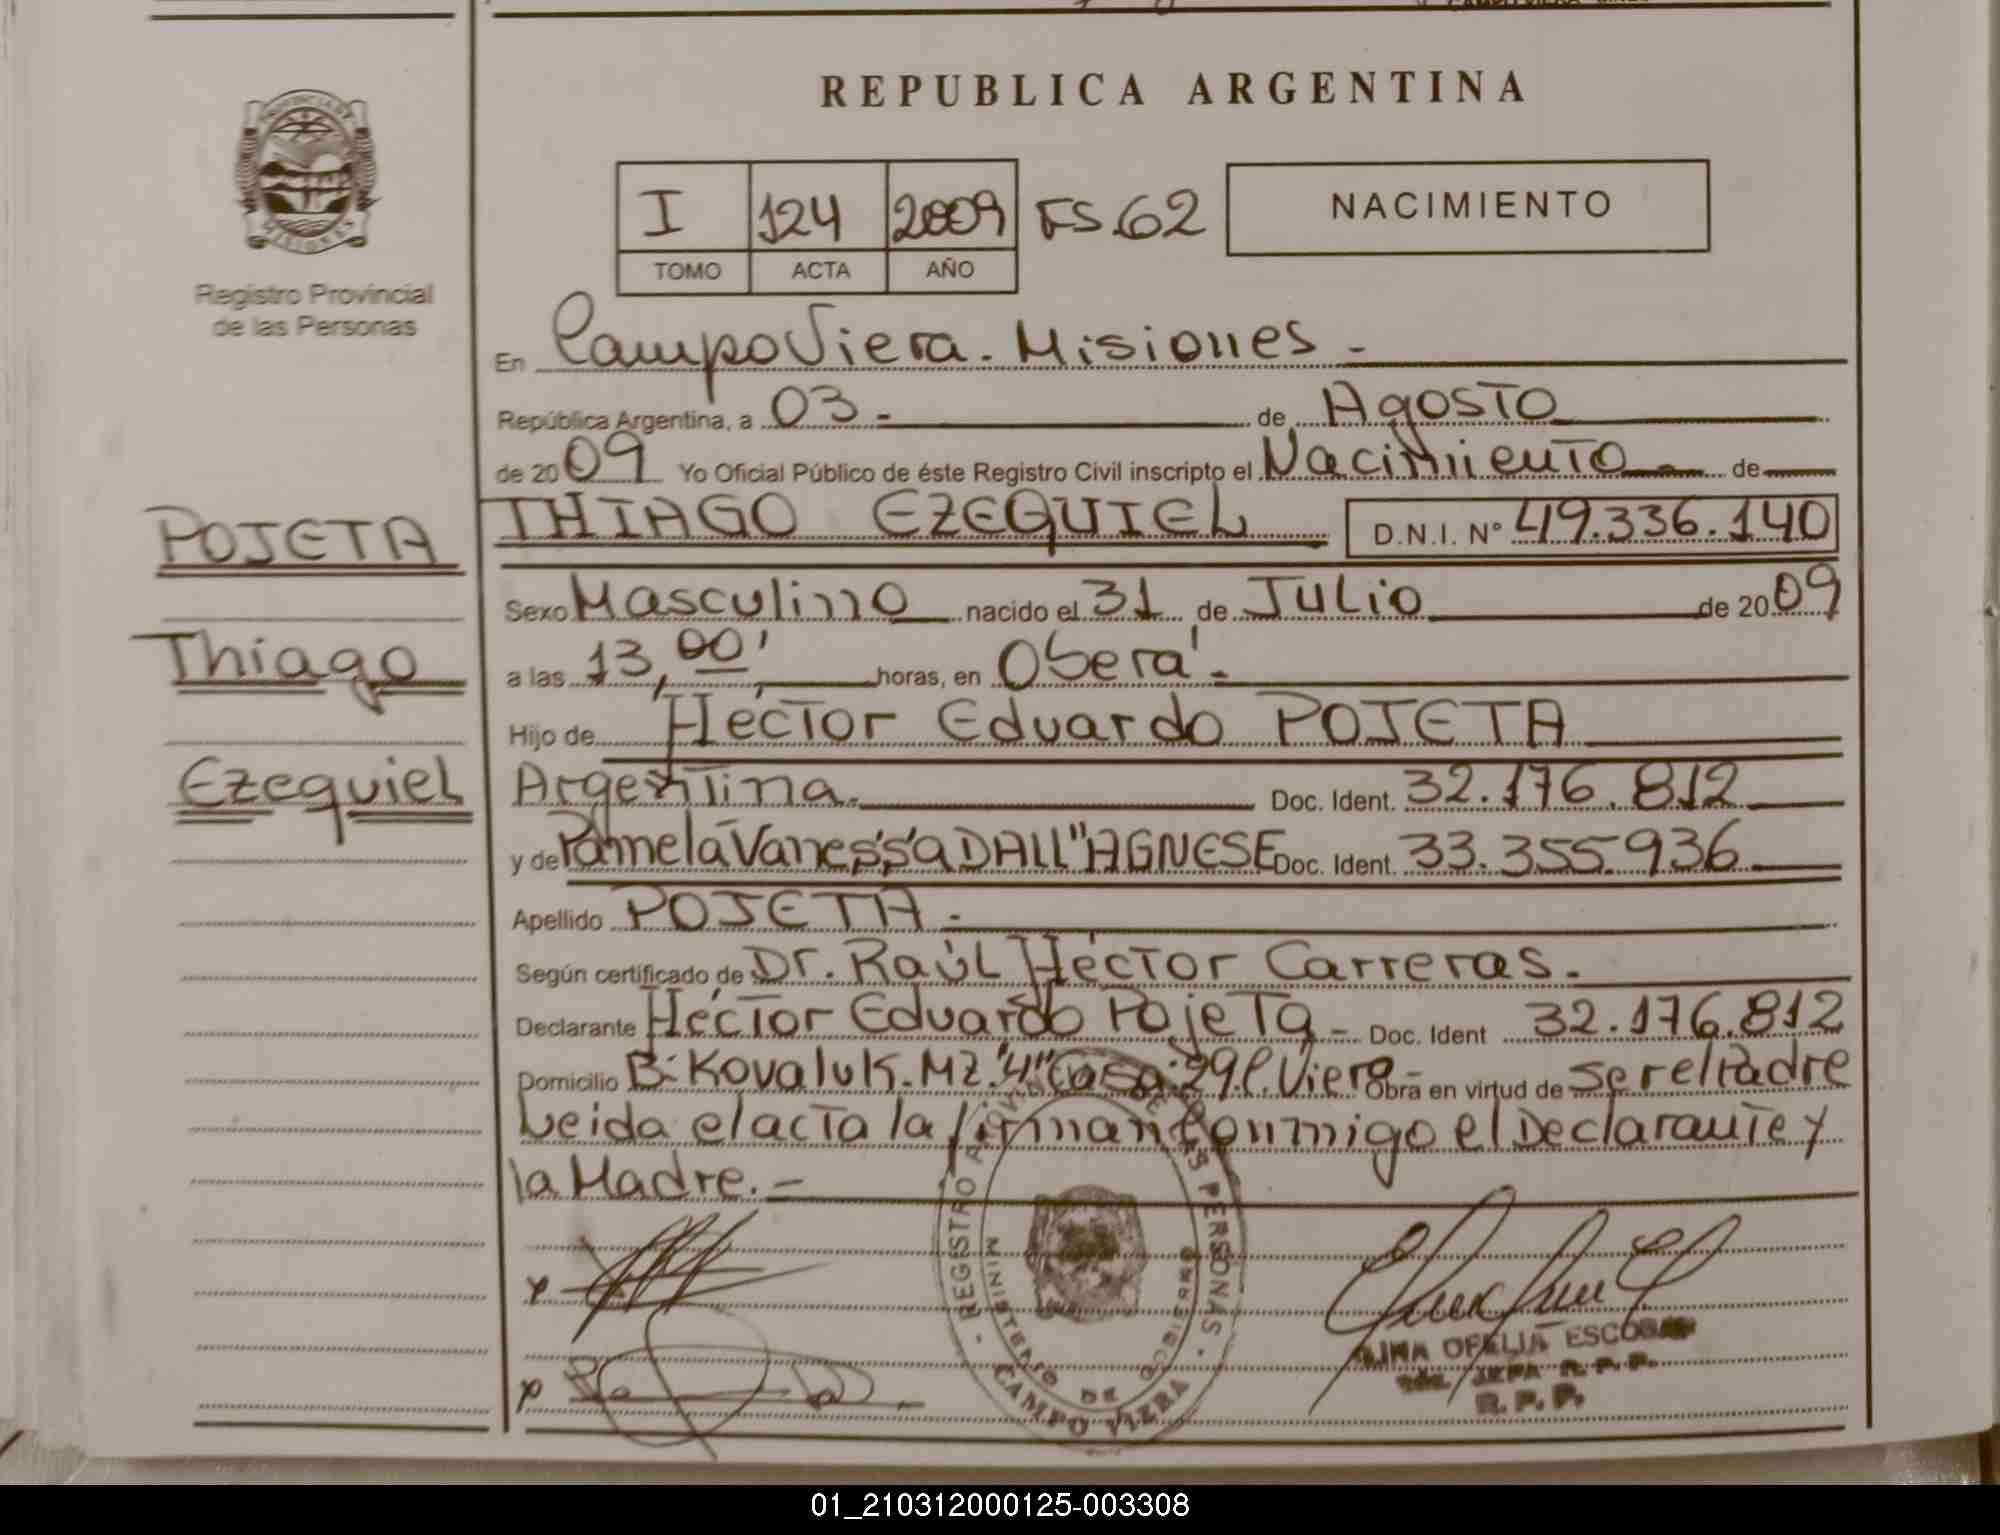 REPUBLICA ARGENTINA
PROVINCIA DE
MISIONES
Registro Provincial
de las Personas
I 124 2009 FS.62
TOMO ACTA AÑO
NACIMIENTO
En CampoViera. Misiones.-
República Argentina, a 03.- de Agosto
de 2009 Yo Oficial Público de éste Registro Civil inscripto el Nacimiento.- de
THIAGO EZEQUIEL D.N.I. Nº 49.336.140
POJETA
Thiago
Ezequiel
Sexo Masculino nacido el 31 de Julio de 2009
a las 13,00' horas, en Oberá.-
Hijo de Héctor Eduardo POJETA
Argentina.- Doc. Ident. 32.176.812
y de Pamela Vanessa DALL"AGNESE Doc. Ident. 33.355.936
Apellido POJETA.-
Según certificado de Dr. Raúl Héctor Carreras.-
Declarante Héctor Eduardo Pojeta- Doc. Ident 32.176.812
Domicilio B: Kovaluk. MZ."4" Casa:29. C. Viera Obra en virtud de ser el Padre
Leida el acta la firman conmigo el Declarante y
la Madre.-
- REGISTRO DE LAS PERSONAS -
MINISTERIO DE GOBIERNO
CAMPO VIERA
OFELIA ESCOBAR
R. P. P.
R. P. P.
01_210312000125-003308